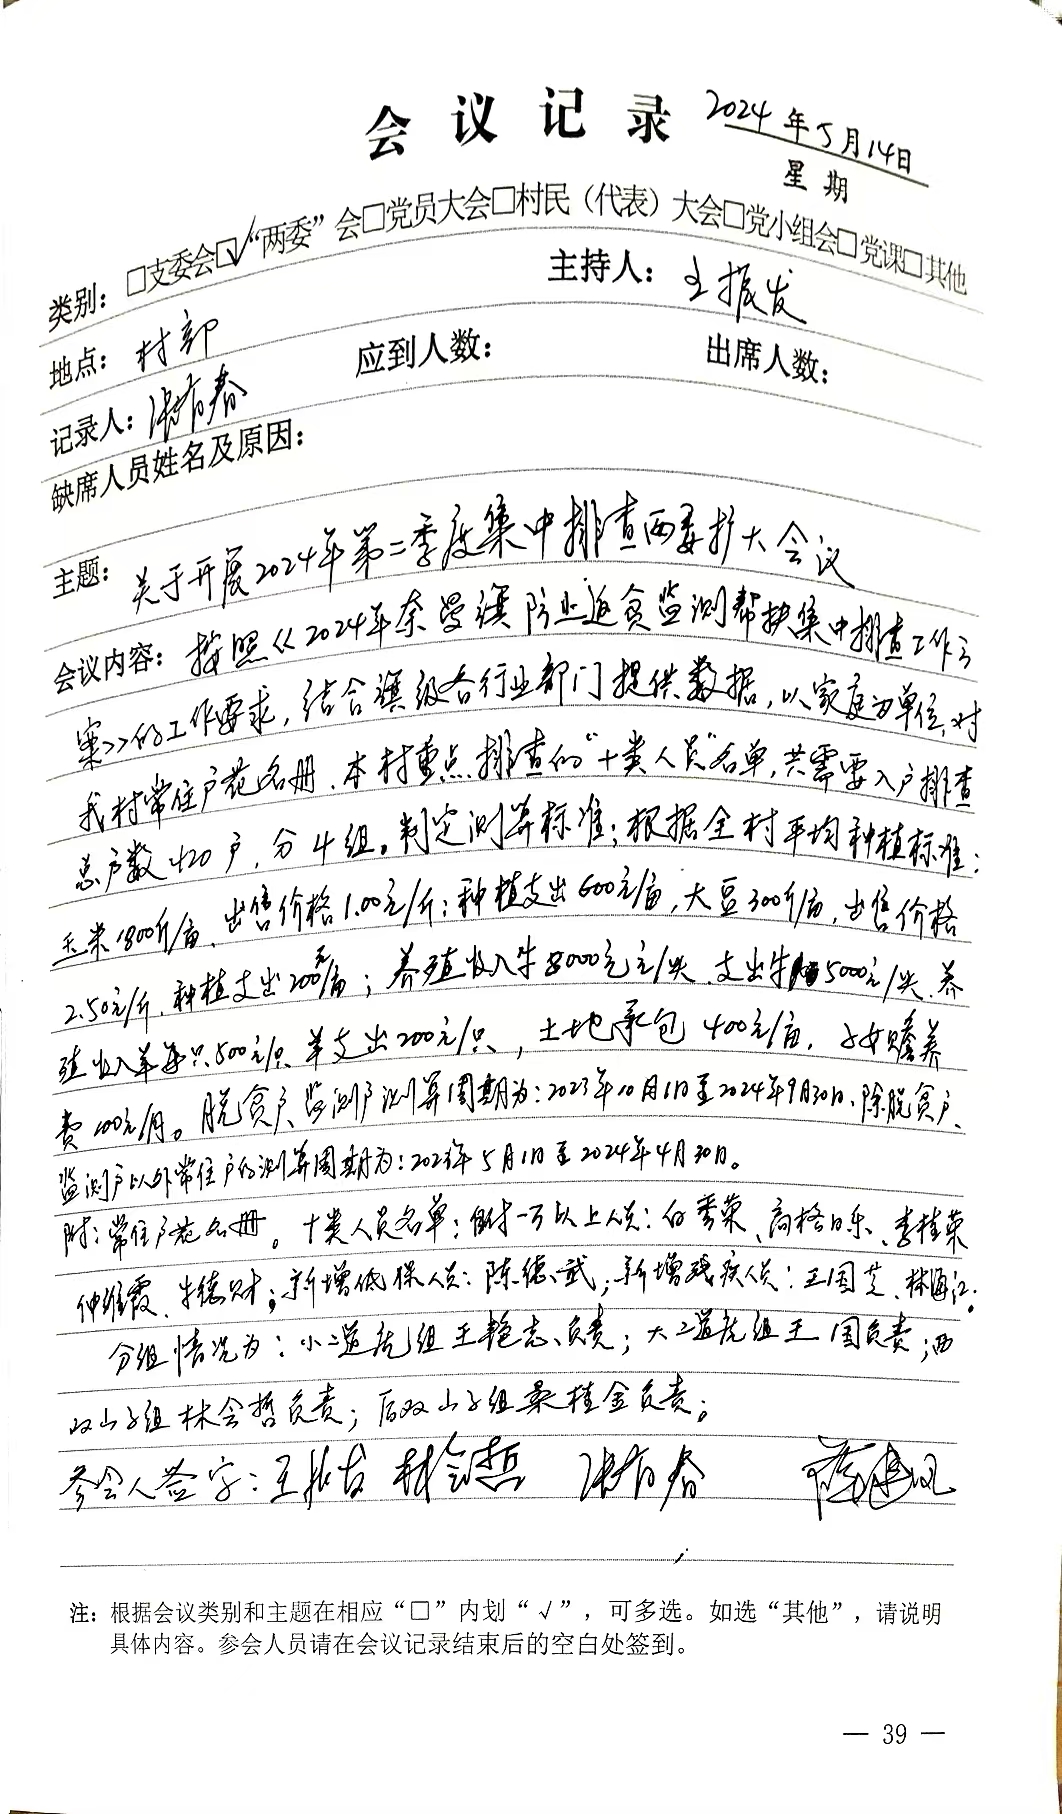 会议记录 2024年5月14日
星期
类别：□支委会☑“两委”会□党员大会□村民（代表）大会□党小组会□党课□其他
地点：村部 主持人：王振发
记录人：张有春 应到人数： 出席人数：
缺席人员姓名及原因：
主题：关于开展2024年第二季度集中排查两委扩大会议
会议内容：按照《2024年奈曼旗防止返贫监测帮扶集中排查工作方
案》的工作要求，结合旗级各行业部门提供数据，以家庭为单位，对
我村常住户花名册、本村重点排查的“十类人员”名单，共需要入户排查
总户数420户，分4组。判定测算标准：根据全村平均种植标准：
玉米1800斤/亩、出售价格1.00元/斤；种植支出600元/亩，大豆300斤/亩，出售价格
2.50元/斤，种植支出200元/亩；养殖收入牛8000元元/头、支出牛5000元/头、养
殖收入羊每只500元/只 羊支出200元/只，土地承包400元/亩，子女赡养
费100元/月。脱贫户、监测户测算周期为：2023年10月1日至2024年9月30日、除脱贫户、
监测户以外常住户的测算周期为：2023年5月1日至2024年4月30日。
附：常住户花名册。十类人员名单：自付一万以上人员：白秀荣、高格日乐、李桂荣
仲维霞、牛德财；新增低保人员：陈德武；新增残疾人员：王国芝、林海江。
分组情况为：小二道沆组王艳志负责；大二道沆组王国负责；西
双山子组林会哲负责；后双山子组桑桂金负责。
参会人签字：王振发 林会哲 张有春
注：根据会议类别和主题在相应“□”内划“√”，可多选。如选“其他”，请说明
具体内容。参会人员请在会议记录结束后的空白处签到。
— 39 —